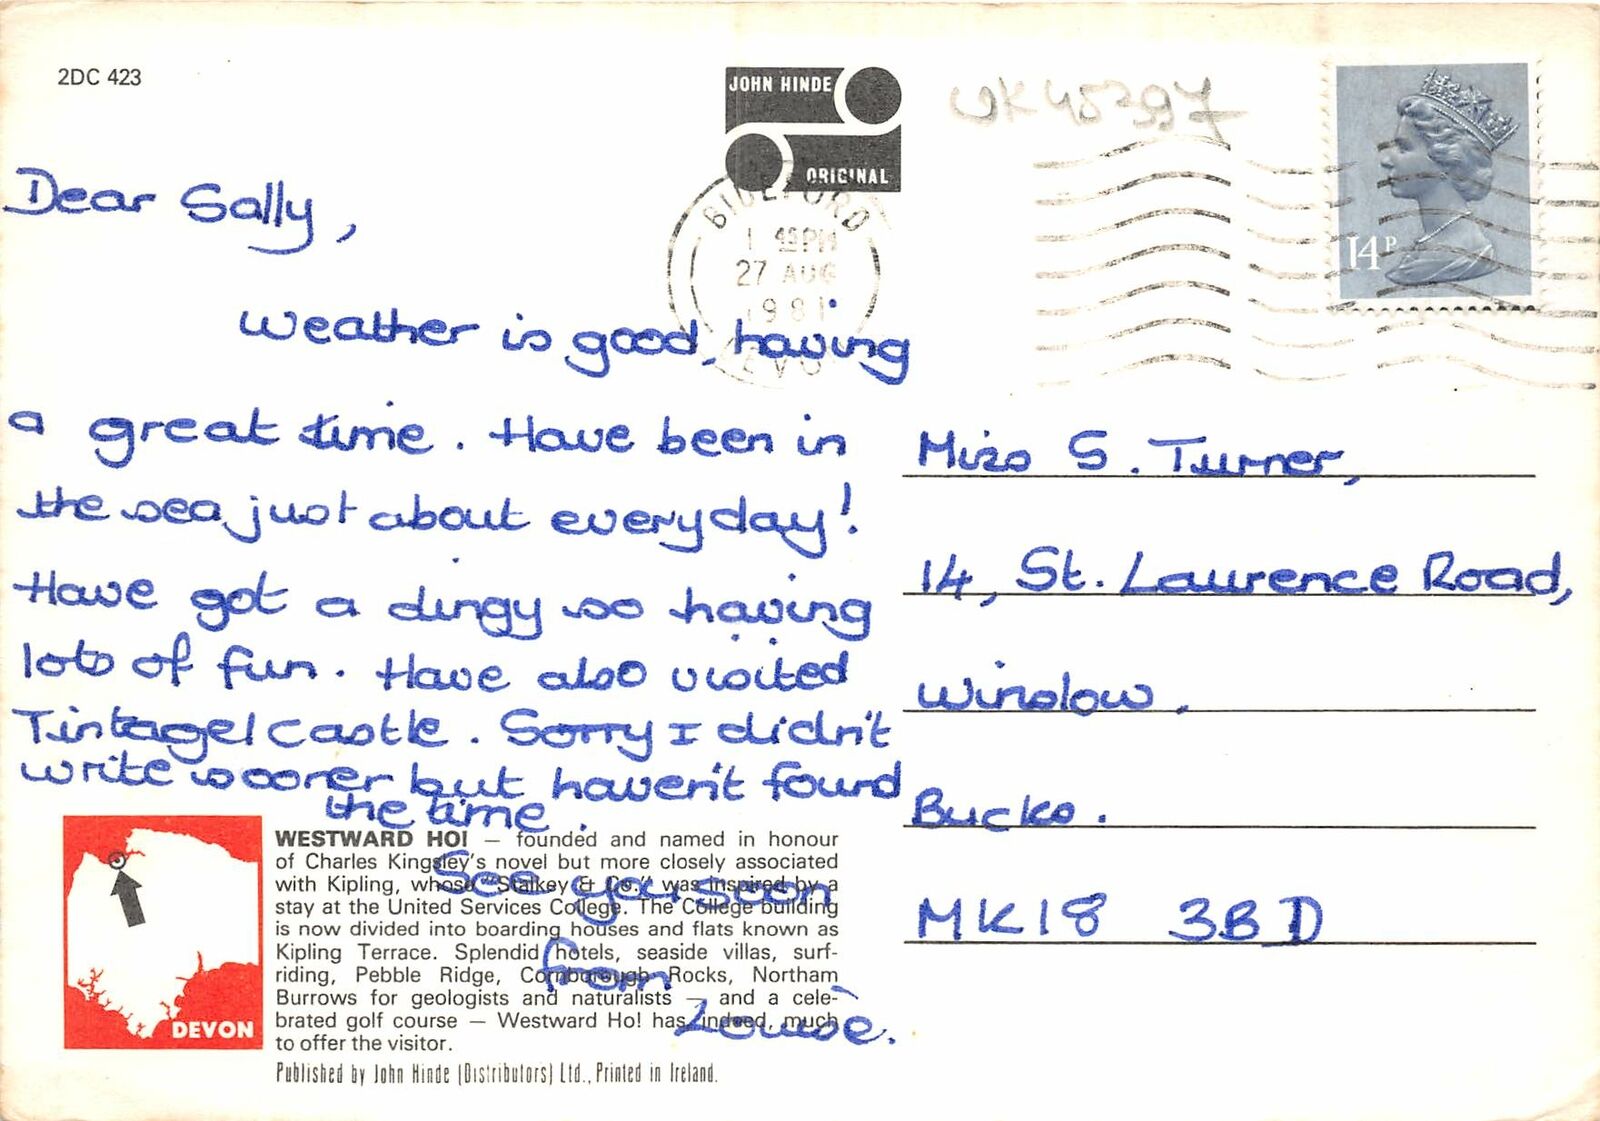 2DC 423
JOHN HINDE
ORIGINAL
UK45397
BIDEFORD
1 45PM
27 AUG
1981
DEVON
14P
Dear Sally,
Weather is good, having
a great time. Have been in
the sea just about everyday!
Have got a dingy so having
lots of fun. Have also visited
Tintagel Castle. Sorry I didn't
write sooner but haven't found
the time.
See you soon
from
Louise.
Miss S. Turner,
14, St. Laurence Road,
Winslow.
Bucks.
MK18 3BD
DEVON
WESTWARD HO! — founded and named in honour
of Charles Kingsley's novel but more closely associated
with Kipling, whose "Stalkey & Co." was inspired by a
stay at the United Services College. The College building
is now divided into boarding houses and flats known as
Kipling Terrace. Splendid hotels, seaside villas, surf-
riding, Pebble Ridge, Cornborough Rocks, Northam
Burrows for geologists and naturalists — and a cele-
brated golf course — Westward Ho! has, indeed, much
to offer the visitor.
Published by John Hinde (Distributors) Ltd., Printed in Ireland.